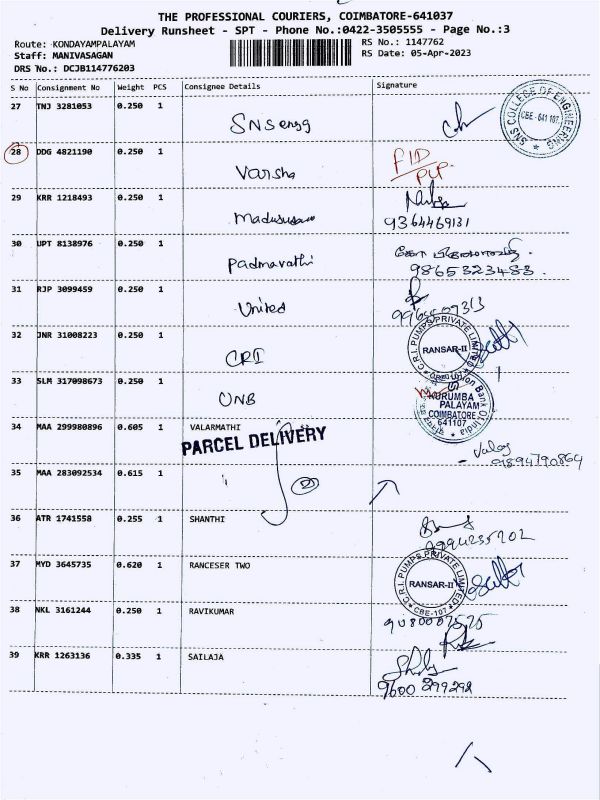 THE PROFESSIONAL COURIERS, COIMBATORE-641037
Delivery Runsheet - SPT - Phone No.:0422-3505555 - Page No.:3
Route: KONDAYAMPALAYAM
RS No.: 1147762
Staff: MANIVASAGAN
RS Date: 05-Apr-2023
DRS No.: DCJB114776203
S No Consignment No Weight PCS Consignee Details Signature
27 TNJ 3281053 0.250 1
SNS engg
SNS COLLEGE OF ENGINEERING
CBE - 641 107
28 DDG 4821190 0.250 1
Varsha
29 KRR 1218493 0.250 1
9364469131
30 UPT 8138976 0.250 1
Padmavathi
9865323483
31 RJP 3099459 0.250 1
United
32 JNR 31008223 0.250 1
CRI
C.R.I. PUMPS PRIVATE LIMITED
RANSAR-II
33 SLM 317098673 0.250 1
UNB
KURUMBA
PALAYAM
COIMBATORE
641107
34 MAA 299980896 0.605 1 VALARMATHI
PARCEL DELIVERY
9894790864
35 MAA 283092534 0.615 1
36 ATR 1741558 0.255 1 SHANTHI
37 MYD 3645735 0.620 1 RANCESER TWO
C.R.I. PUMPS PRIVATE LIMITED
RANSAR-II
CBE-107
38 NKL 3161244 0.250 1 RAVIKUMAR
39 KRR 1263136 0.335 1 SAILAJA
9600 299292